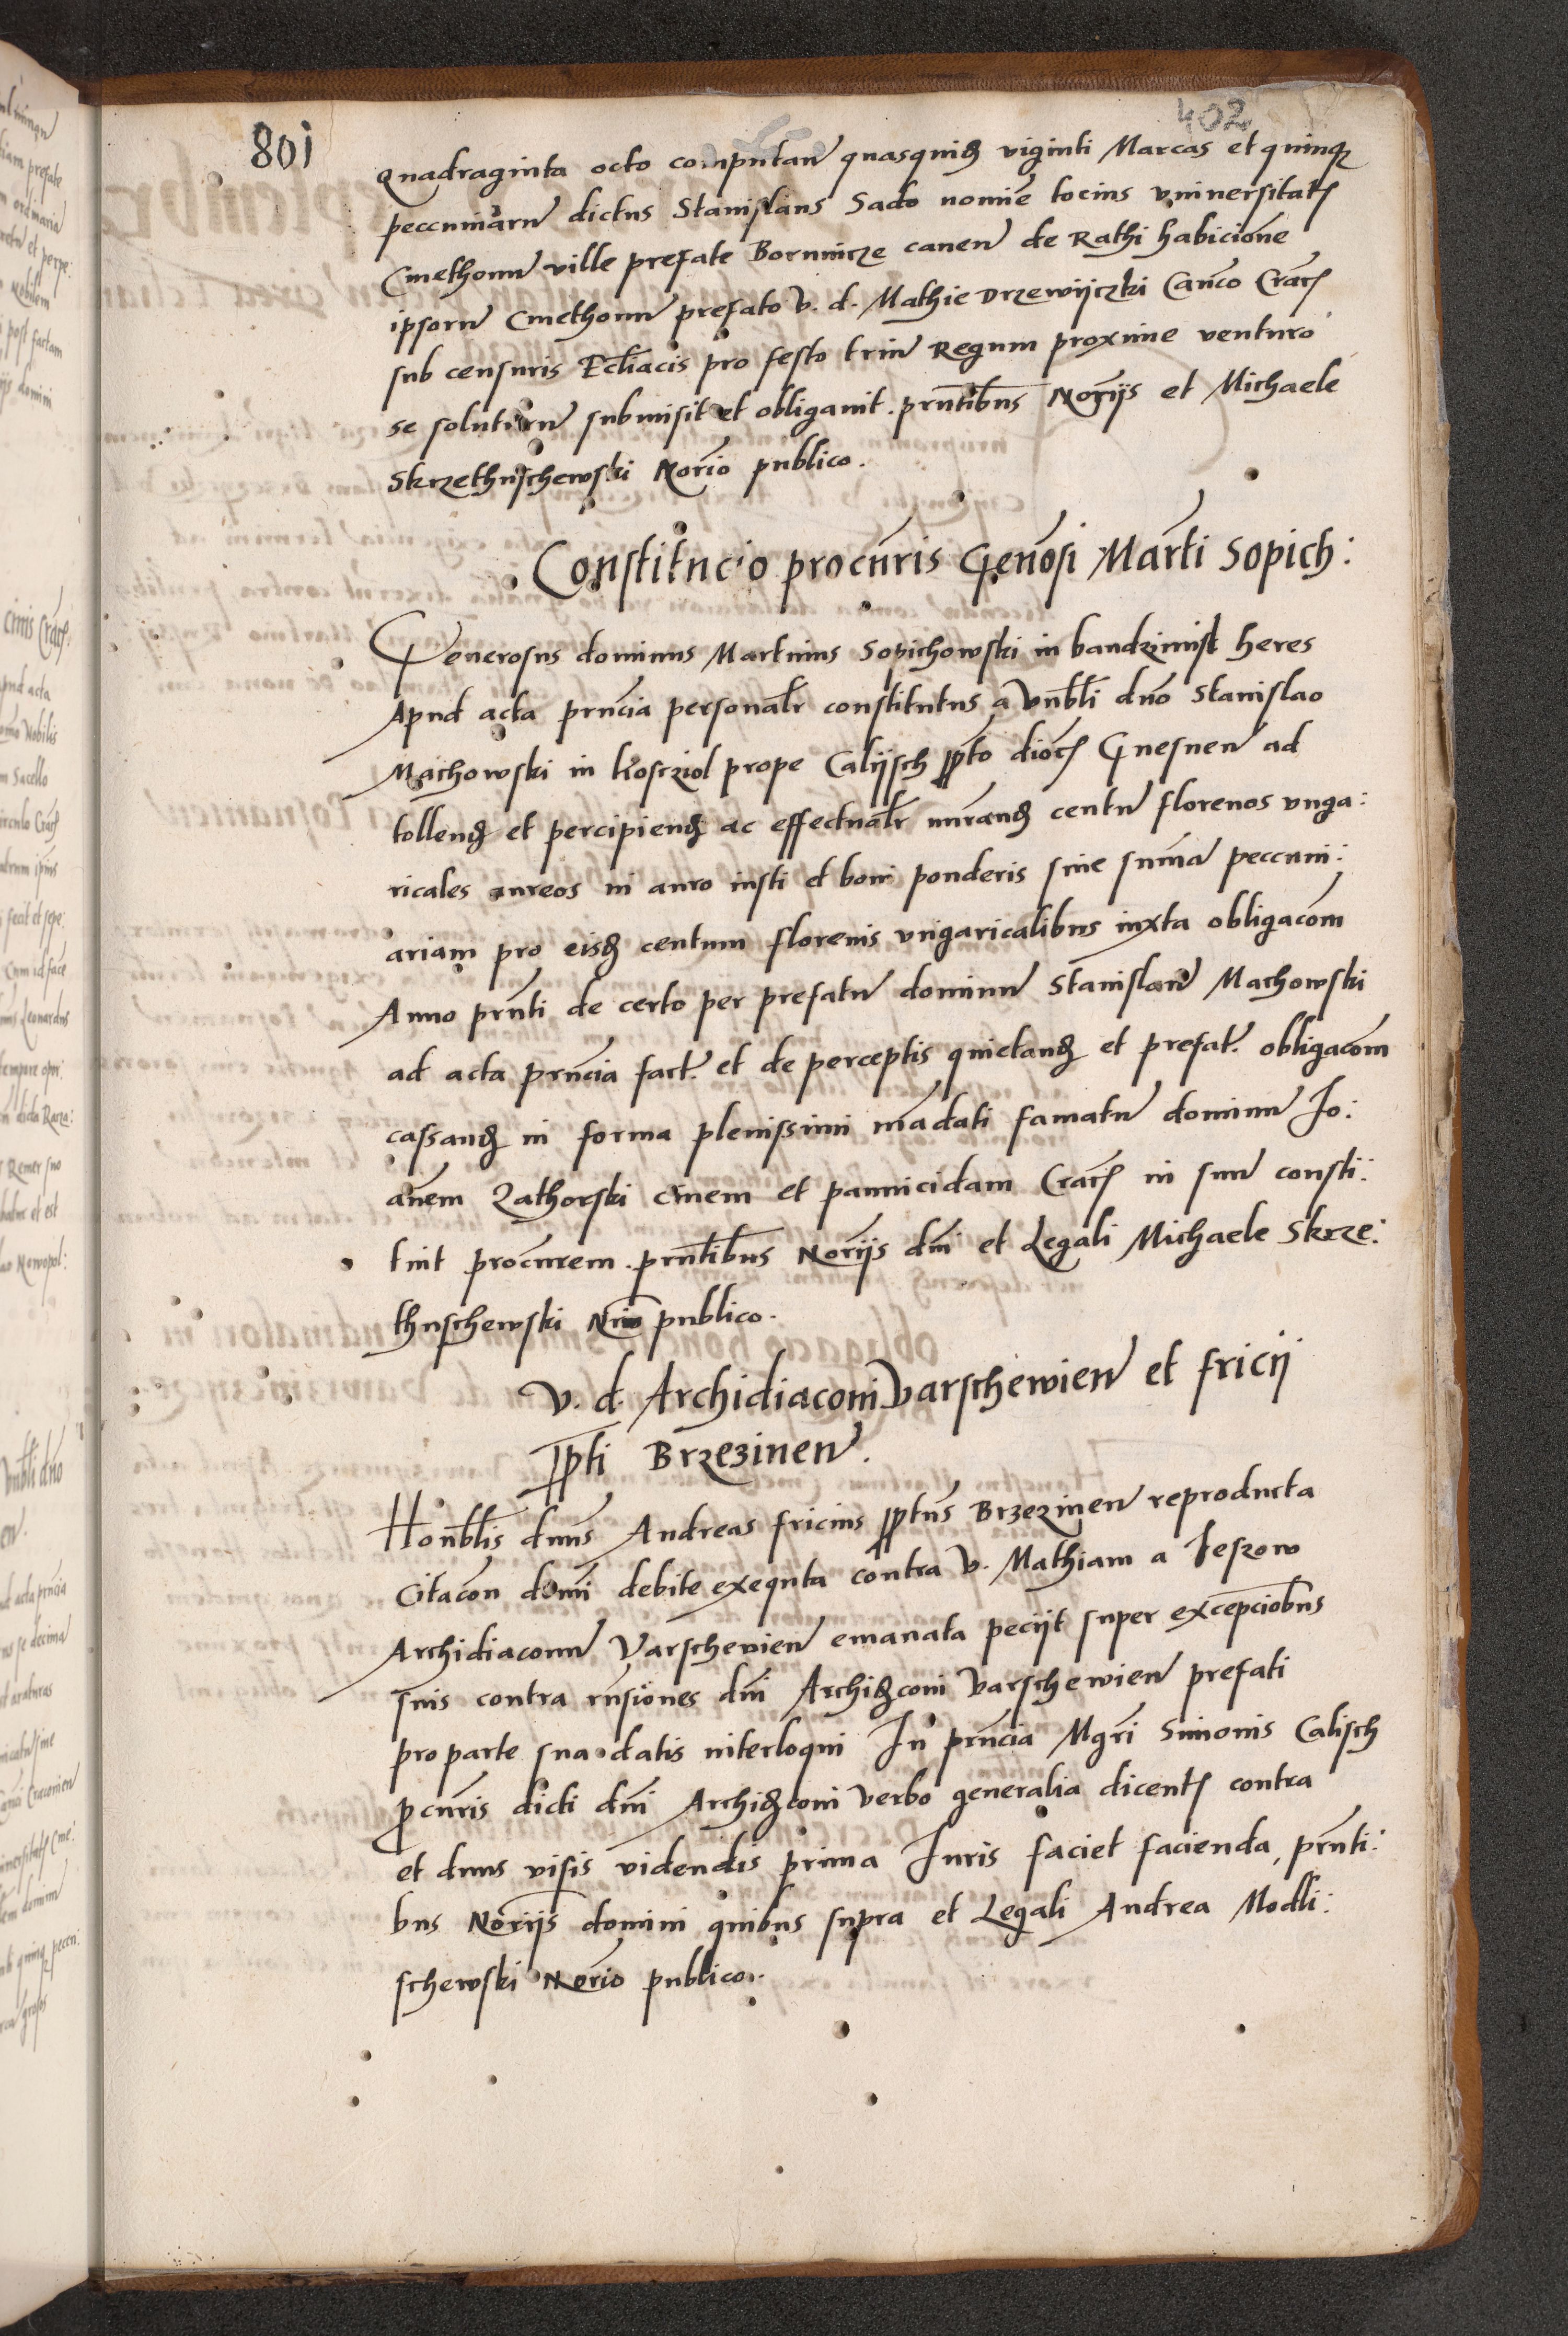 801
402
quadraginta octo computan quasquidem viginti Marcas et quinque
peccuniarum dictus Stanislaus Sado nomine tocius vniuersitatis
Cmethonum ville prefate Borunicze cauen de Rathi habicione
ipsorum Cmethonum prefato V. d. Mathie Drzewijczki Canco Crac
sub censuris Ecclíacis pro festo trium Regum proxime venturo
se soluturum submisit et obligauit. pñtibus Norijs et Michaele
Skrzethuschewski Norio publico.
Constitucio procuris Genosi Marti Sopich:
Generosus dominus Martinus Sopichowski in bandzimist heres
Apud acta prñcia personalr constitutus a Vnbli dno Stanislao
Machowski in koscziol prope Calijsch ppto dioc Gnesnen ad
tollend et percipiend ac effectualr nurand centum florenos vnga:
ricales aureos in auro iusti et boni ponderis siue summa peccuni:
ariam pro eisd centum florenis vngaricalibus iuxta obligacom
Anno prñti de certo per prefatum dominum Stanislaum Machowski
ad acta prñcia fact. et de perceptis quietand et prefat. obligacom
cassand in forma plenissimi mãdati famatum dominum Io:
anem Zathorski ciuem et pannicidam Crac in suum consti:
tuit procurem. prñtibus Norijs dni et Legali Michaele Skrze:
thuschewski Nrio publico.
V. d. Archidiaconi Varschewien et fricij
ppti Brzezinen.
Honblis dnus Andreas fricius pptus Brzezinen reproducta
Citacon domi debite exequta contra V. Mathiam a Jeszow
Archidiaconum Varschewien emanata pecijt super excepciobus
suis contra rnsiones dni Archidconi Varschewien prefati
pro parte sua datis interloqui In prñcia Mgri Simonis Calisch
pcuris dicti dni Archidconi verbo generalia dicent contra
et dnus visis videndis prima Iuris faciet facienda, prñti:
bus Norijs domini quibus supra et Legali Andrea Modli:
schewski Norio publico.